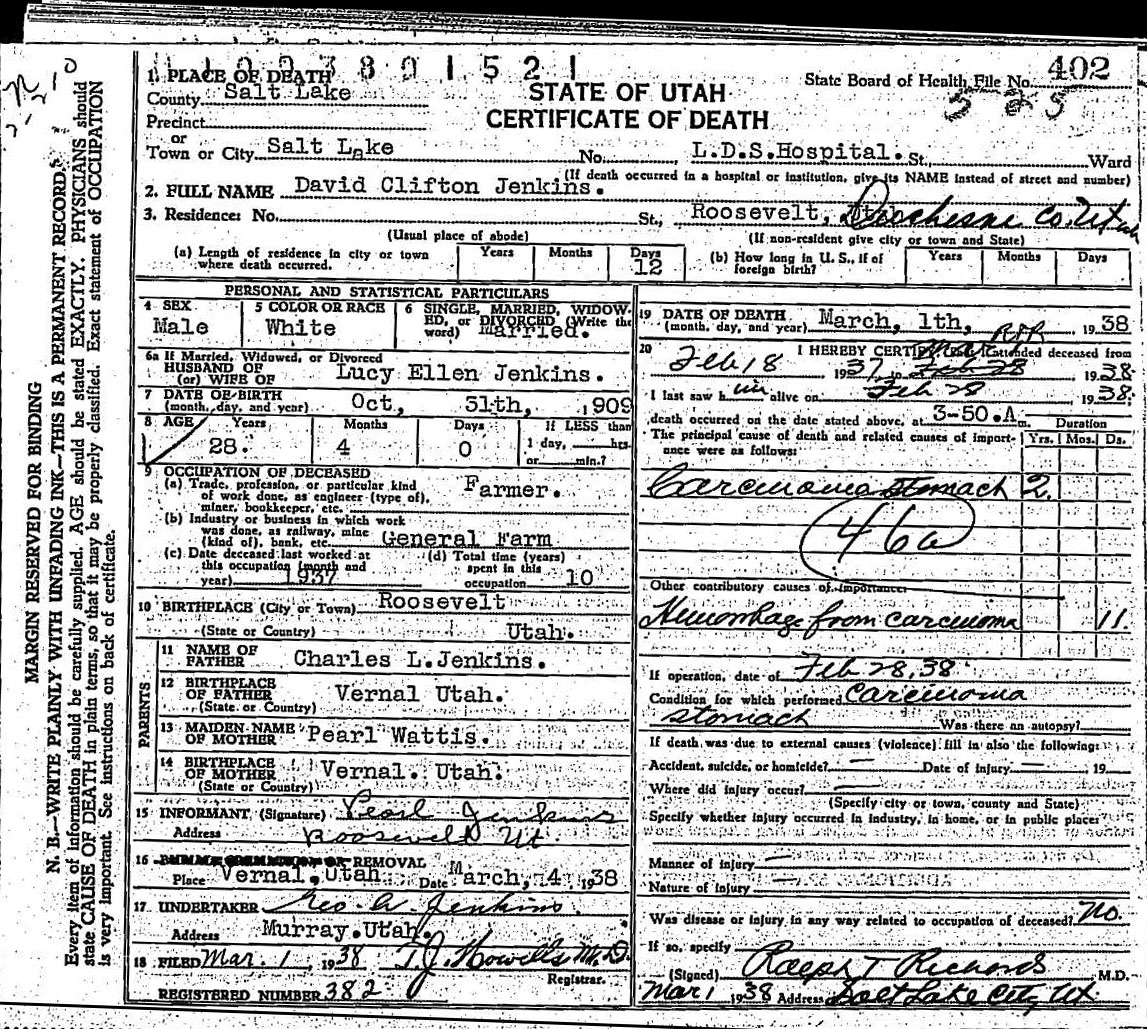 1 1 0 0 3 8 0 1 5 2 1
1. PLACE OF DEATH
County Salt Lake
Precinct
or
Town or City Salt Lake No. L.D.S.Hospital. St., Ward
(If death occurred in a hospital or institution, give its NAME instead of street and number)
STATE OF UTAH
CERTIFICATE OF DEATH
State Board of Health File No. 402
525
2. FULL NAME David Clifton Jenkins.
3. Residence: No. St., Roosevelt, Duchesne Co. Utah
(Usual place of abode) (If non-resident give city or town and State)
(a) Length of residence in city or town where death occurred. Years Months Days 12
(b) How long in U. S., if of foreign birth? Years Months Days
PERSONAL AND STATISTICAL PARTICULARS
4 SEX Male
5 COLOR OR RACE White
6 SINGLE, MARRIED, WIDOWED, or DIVORCED (Write the word) Married.
6a If Married, Widowed, or Divorced
HUSBAND OF
(or) WIFE OF Lucy Ellen Jenkins.
7 DATE OF BIRTH
(month, day, and year) Oct, 31th, 1909
8 AGE Years 28. Months 4 Days 0 If LESS than 1 day, hrs. or min.?
9 OCCUPATION OF DECEASED
(a) Trade, profession, or particular kind of work done, as engineer (type of), miner, bookkeeper, etc. Farmer.
(b) Industry or business in which work was done, as railway, mine (kind of), bank, etc. General Farm
(c) Date deceased last worked at this occupation (month and year) 1937
(d) Total time (years) spent in this occupation 10
10 BIRTHPLACE (City or Town) Roosevelt
(State or Country) Utah.
PARENTS
11 NAME OF FATHER Charles L.Jenkins.
12 BIRTHPLACE OF FATHER Vernal Utah.
(State or Country)
13 MAIDEN NAME OF MOTHER Pearl Wattis.
14 BIRTHPLACE OF MOTHER Vernal. Utah.
(State or Country)
15 INFORMANT (Signature) Pearl Jenkins
Address Roosevelt Ut.
16 REMOVAL
Place Vernal.Utah Date March, 4 1938
17 UNDERTAKER Geo. A. Jenkins.
Address Murray.Utah.
18 FILED Mar. 1, 1938 T.J. Howells M.D.
Registrar.
REGISTERED NUMBER 382
19 DATE OF DEATH
(month, day, and year) March, 1th, 1938
20 I HEREBY CERTIFY, That I attended deceased from
Feb 18 1937 to Feb 28 1938
I last saw him alive on Feb 28 1938.
death occurred on the date stated above, at 3-50.A m.
Duration
The principal cause of death and related causes of importance were as follows: Yrs. Mos. Ds.
Carcinoma stomach 2.
46a
Other contributory causes of importance:
Hemorrhage from carcinoma 11.
If operation, date of Feb 28, 38
Condition for which performed Carcinoma
stomach Was there an autopsy?
If death was due to external causes (violence) fill in also the following:
Accident, suicide, or homicide? — Date of injury — 19
Where did injury occur? —
(Specify city or town, county and State)
Specify whether injury occurred in industry, in home, or in public place:
Manner of injury —
Nature of injury —
Was disease or injury in any way related to occupation of deceased? No.
If so, specify
(Signed) Ralph T Richards M.D.
Mar 1 1938 Address Salt Lake City Ut.
MARGIN RESERVED FOR BINDING
N. B.—WRITE PLAINLY WITH UNFADING INK—THIS IS A PERMANENT RECORD.
Every item of information should be carefully supplied. AGE should be stated EXACTLY. PHYSICIANS should
state CAUSE OF DEATH in plain terms, so that it may be properly classified. Exact statement of OCCUPATION
is very important. See instructions on back of certificate.